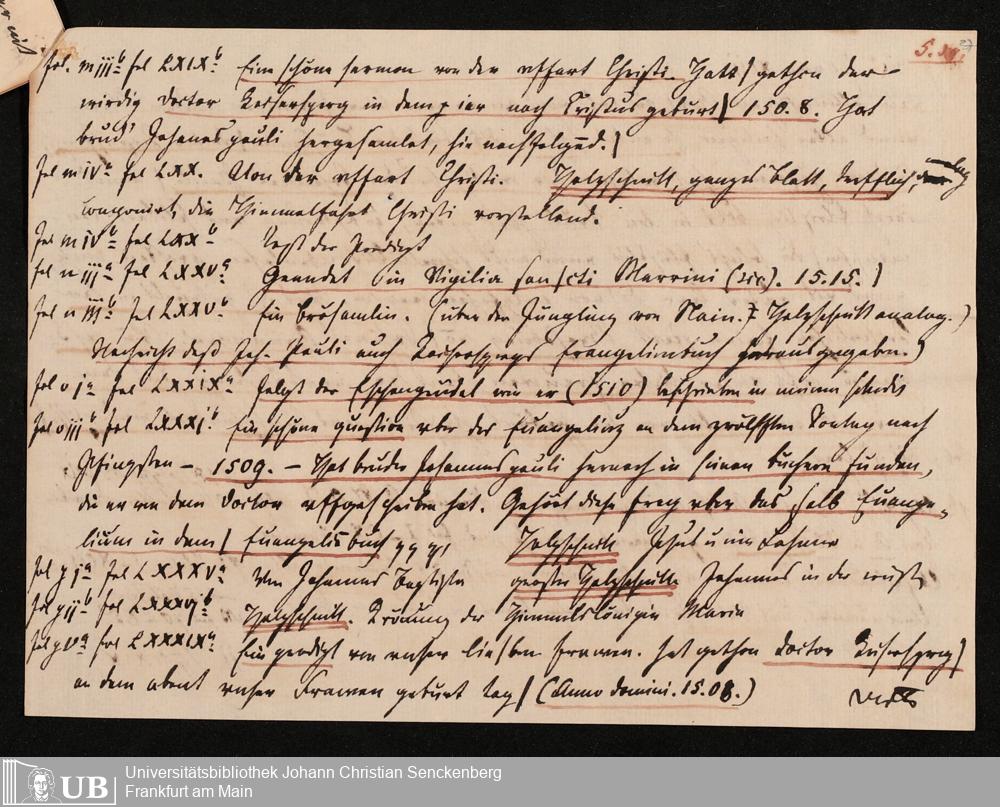 S. 
fol. m iij b fol LXIX b Ein schöne sermon von der uffart Christi. Hatt | gethon der
wirdig doctor Keiserspergin dem ier noch Cristus geburt | 150.8. Hat
brud' Johanes pauli hergesamlet, hie nachfolgend. |
fol m iv a fol LXX. Von der uffart Christi. Holzschnitt, ganzes Blatt, trefflich
componirt, die Himmelfahrt Christi vorstellend.
fol m iv b fol LXX b Text der Predigt
fol n iij a fol LXXV a Geendet in Vigilia sancti Marrini (sic). 15.15. |
fol n iij b fol LXXV b Ein brösamlin. (über den Jüngling von Nain. Holzschnitt analog.)
Nachricht daß Joh. Pauli auch Keiserspergs Evangelienbuch herausgegeben.)
fol o j a fol LXXIX a Folgt der Eschengrüdel wie er (1510) beschrieben in meinem
fol o iij b fol LXXXj b Ein schöne question uber das Euangelium an dem zwölfften Sontag nach
Pfingsten – 1509. – Hat bruder Johannes pauli hernoch in seinen büchern funden,
die er von dem doctor uffgeschriben hat. Gehört diese frag uber das selb Euange-
lium in dem | Euangelis buch Holzschnitt Jesus u ein Lahmer
fol p j a fol LXXXV a Von Johannes Baptista großer Holzschnitt Johannes in der wüste
fol p ij b fol LXXXVj b Holzschnitt. Krönung der Himmelskönigin Maria
fol p v a fol LXXXIX a Ein predigt von unser lieben frawen. hat gethon doctor Keisersperg |
an dem abent unser Frawen geburt tag | (Anno domini. 15.08.) 
UB
Universitätsbibliothek Johann Christian Senckenberg
Frankfurt am Main